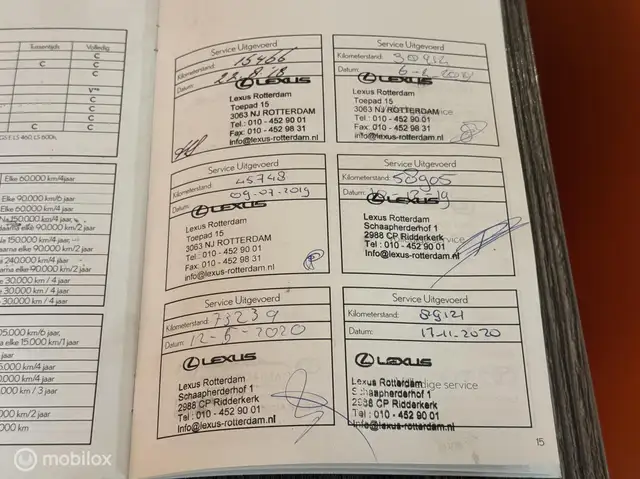 Tussentijds Volledig
C
C C
C
V**
C
C
C C
Elke 60.000 km/4jaar
Elke 90.000 km/6 jaar
Elke 60.000 km/4 jaar
Na 150.000 km/4 jaar,
daarna elke 90.000 km/2 jaar
Na 150.000 km/4 jaar,
daarna elke 90.000 km/2 jaar
240.000 km/4 jaar
elke 90.000 km/2 jaar
30.000 km / 4 jaar
30.000 km / 4 jaar
30.000 km / 4 jaar
km/6 jaar,
a elke 15.000 km/1 jaar
jaar
km/4 jaar
5.000 km/4 jaar
000 km / 3 jaar
000 km/2 jaar
000 km
Service Uitgevoerd
Kilometerstand: 15466
Datum:
LEXUS
Lexus Rotterdam
Toepad 15
3063 NJ ROTTERDAM
Tel.: 010 - 452 90 01
Fax: 010 - 452 98 31
info@lexus-rotterdam.nl
Service Uitgevoerd
Kilometerstand: 30912
Datum:
LEXUS
Lexus Rotterdam
Toepad 15
3063 NJ ROTTERDAM service
Tel.: 010 - 452 90 01
Fax: 010 - 452 98 31
info@lexus-rotterdam.nl
Service Uitgevoerd
Kilometerstand: 45748
Datum: 09-07-2019
LEXUS
Lexus Rotterdam
Toepad 15
3063 NJ ROTTERDAM
Tel.: 010 - 452 90 01
Fax: 010 - 452 98 31
info@lexus-rotterdam.nl
Service Uitgevoerd
Kilometerstand: 58905
Datum: 10-12-19
LEXUS
Lexus Rotterdam
Schaapherderhof 1
2988 CP Ridderkerk service
Tel : 010 - 452 90 01
info@lexus-rotterdam.nl
Service Uitgevoerd
Kilometerstand: 73239
Datum: 12-6-2020
LEXUS
Lexus Rotterdam
Schaapherderhof 1
2988 CP Ridderkerk
Tel : 010 - 452 90 01
info@lexus-rotterdam.nl
Service Uitgevoerd
Kilometerstand: 89121
Datum: 17-11-2020
LEXUS
Lexus Rotterdam dige service
Schaapherderhof 1
2988 CP Ridderkerk
Tel : 010 - 452 90 01
info@lexus-rotterdam.nl
15
mobilox